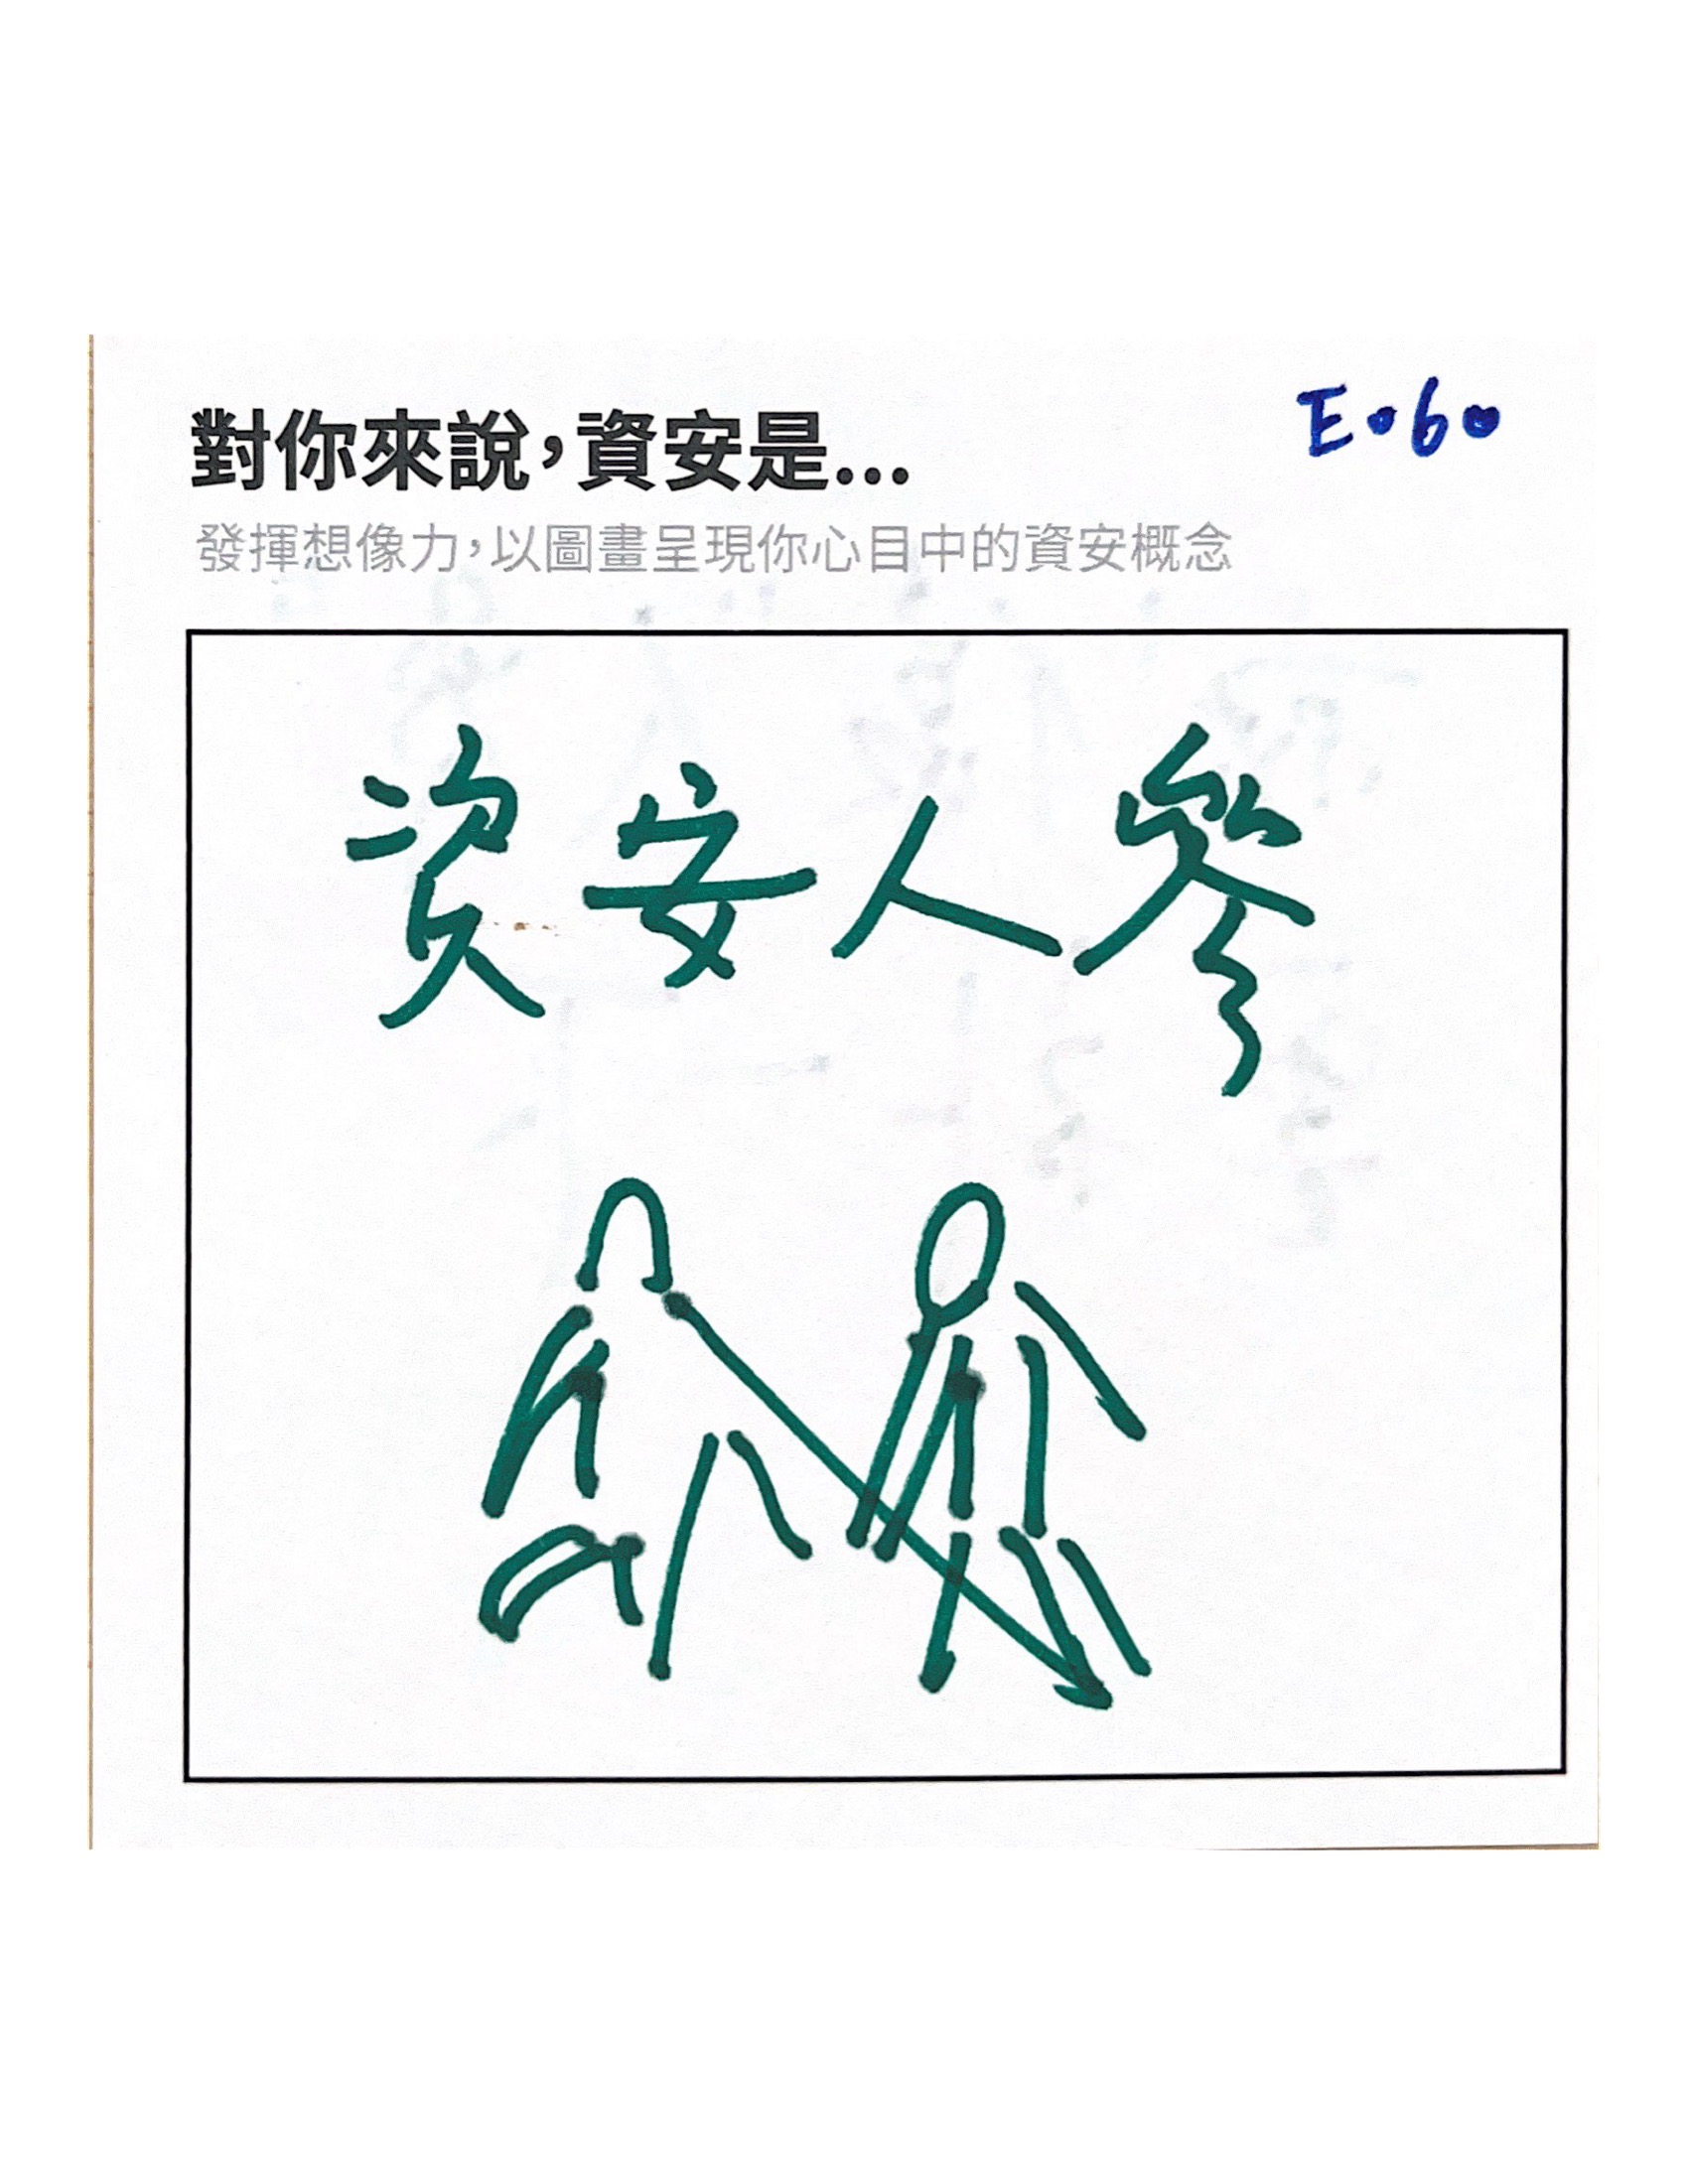 E060
對你來說,資安是...
發揮想像力,以圖畫呈現你心目中的資安概念
資安人參